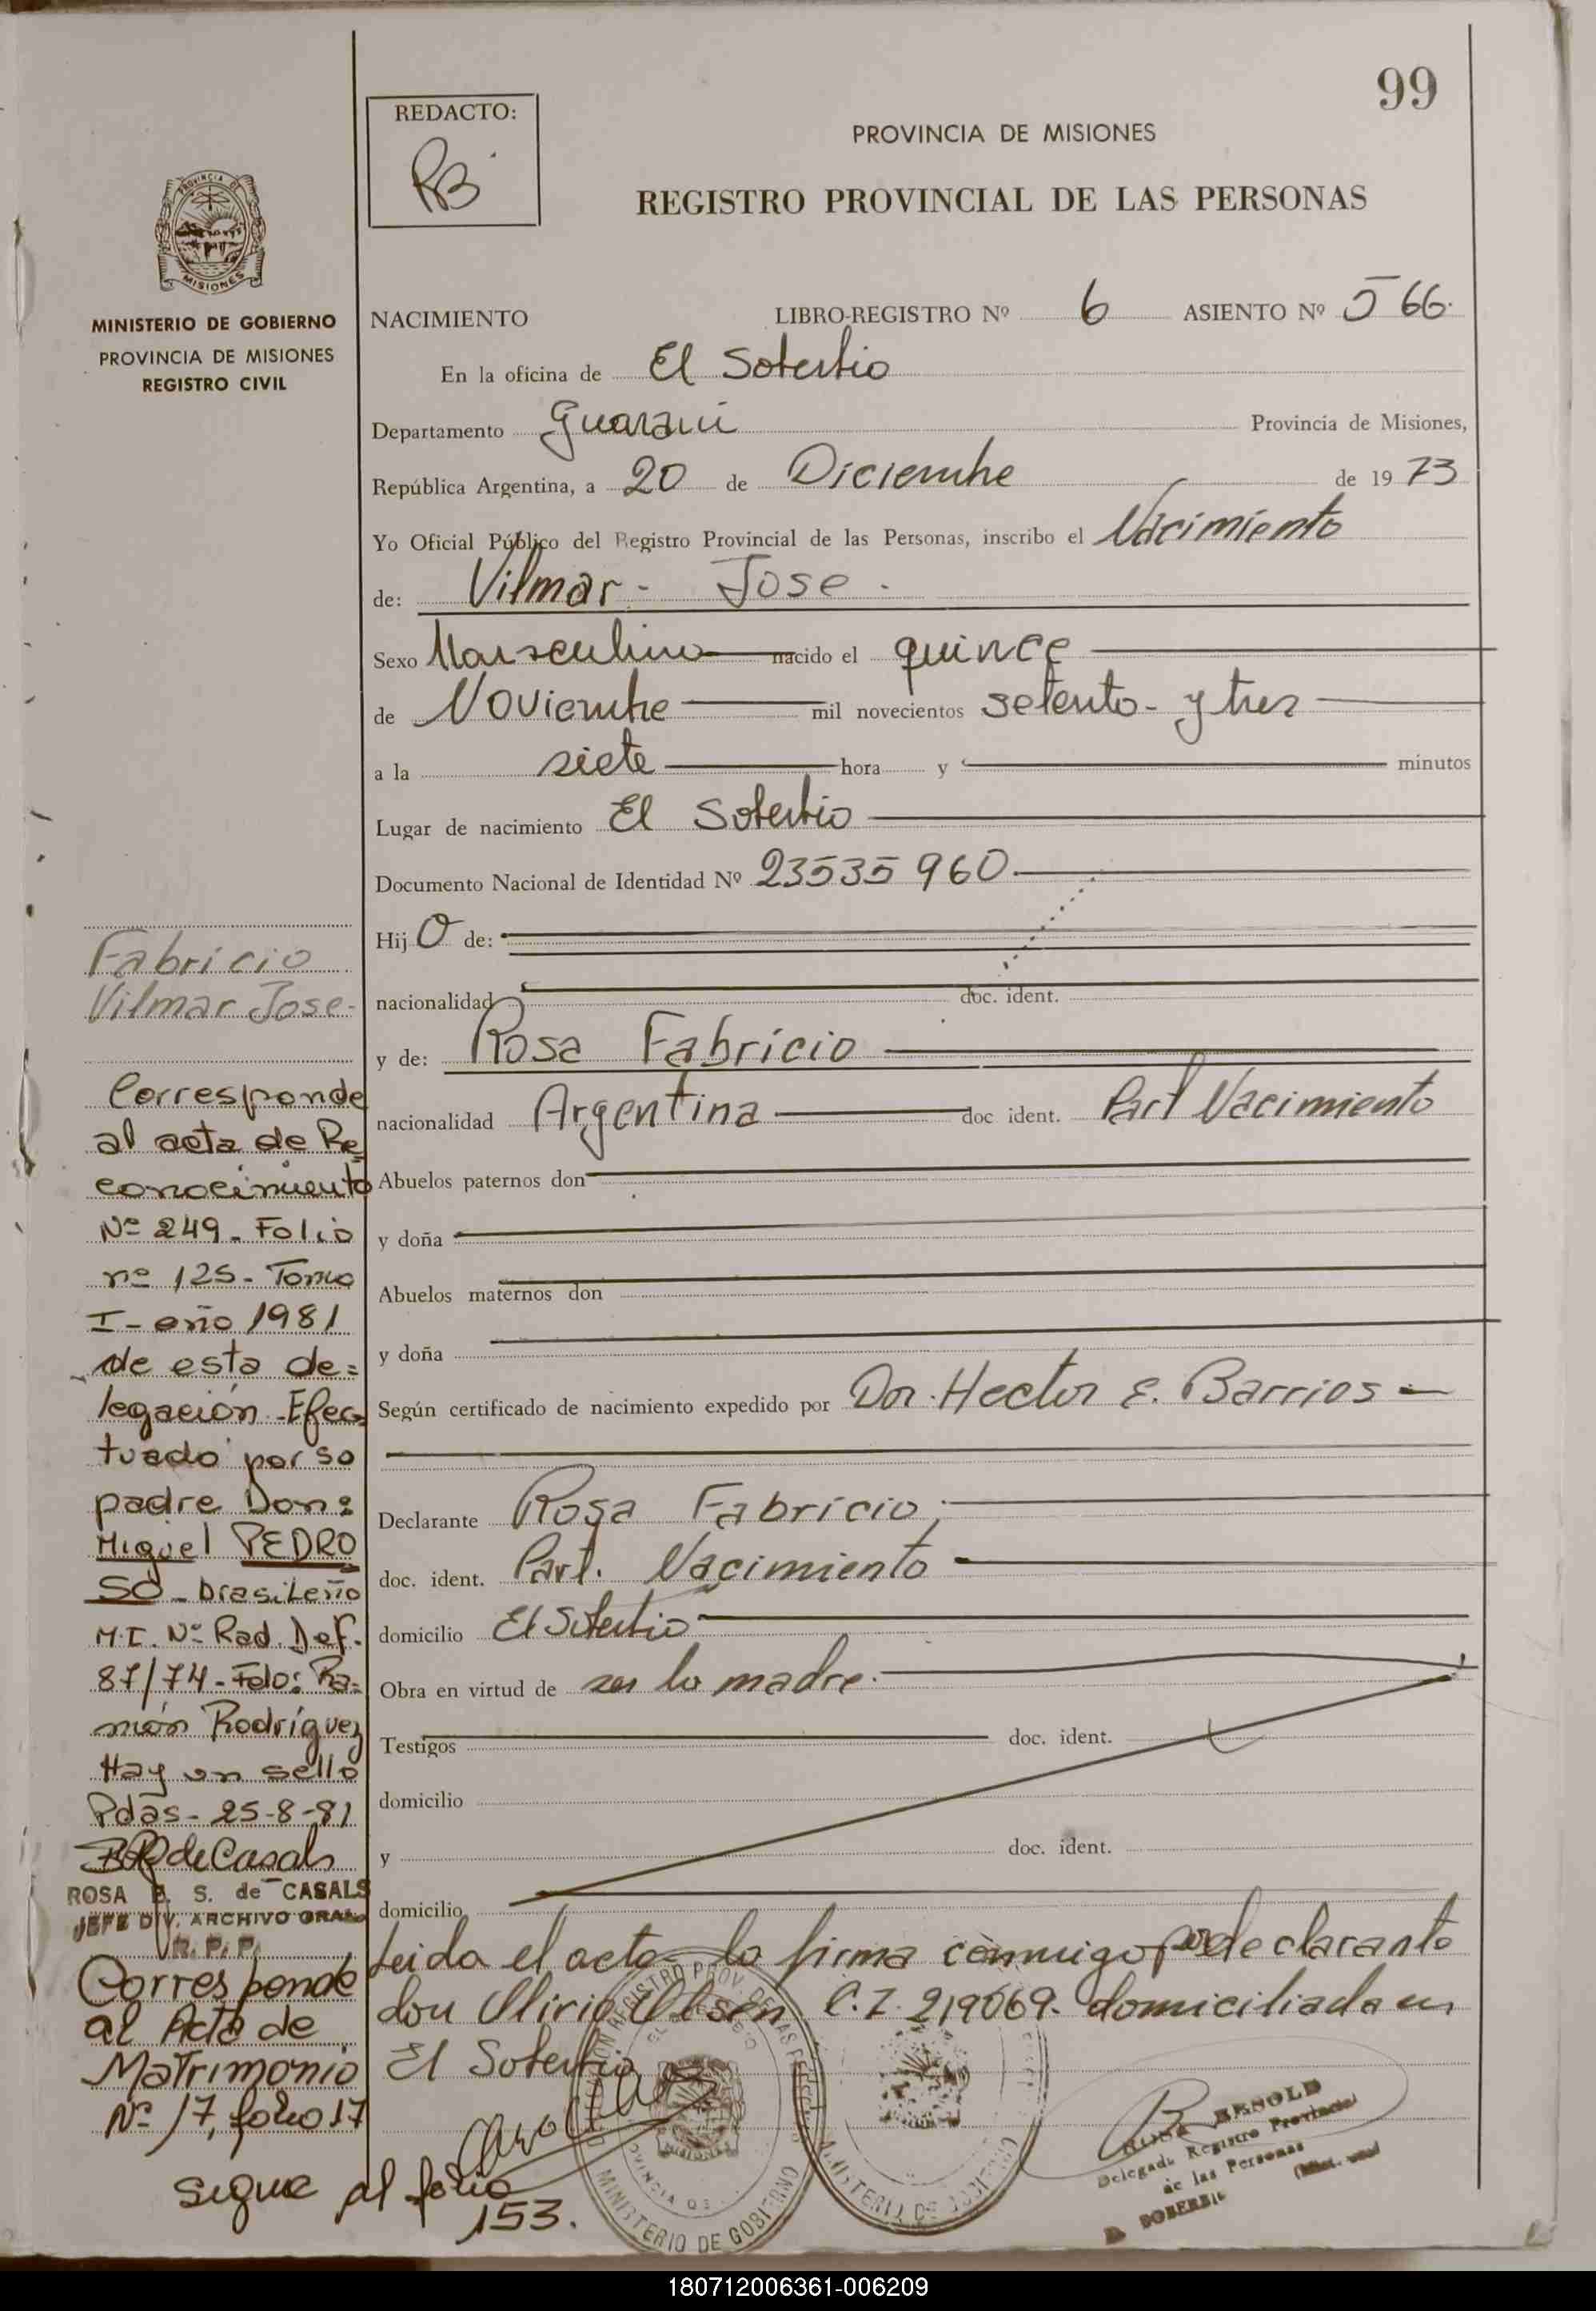 99
REDACTO:
RB
PROVINCIA DE MISIONES
REGISTRO PROVINCIAL DE LAS PERSONAS
PROVINCIA DE
MISIONES
MINISTERIO DE GOBIERNO
PROVINCIA DE MISIONES
REGISTRO CIVIL
NACIMIENTO LIBRO-REGISTRO Nº 6 ASIENTO Nº 566.
En la oficina de El Soberbio
Departamento Guarani Provincia de Misiones,
República Argentina, a 20 de Diciembre de 1973
Yo Oficial Público del Registro Provincial de las Personas, inscribo el Nacimiento
de: Vilmar - Jose -
Sexo Masculino nacido el quince
de Noviembre mil novecientos setenta - y tres
a la siete hora y minutos
Lugar de nacimiento El Soberbio
Documento Nacional de Identidad Nº 23535960
Hijo de:
nacionalidad doc. ident.
y de: Rosa Fabricio
nacionalidad Argentina doc ident. Part Nacimiento
Abuelos paternos don
y doña
Abuelos maternos don
y doña
Según certificado de nacimiento expedido por Dor. Hector E. Barrios -
Declarante Rosa Fabricio,
doc. ident. Part. Nacimiento
domicilio El Soberbio
Obra en virtud de ser la madre.
Testigos doc. ident.
domicilio
y doc. ident.
domicilio
Leida el acta la firma conmigo por declarante
don Olirio Olsen C.I. 219069. domiciliada en
El Soberbio
Fabricio
Vilmar Jose-
Corresponde
al acta de Re
conocimiento
Nº 249 - Folio
nº 125 - Tomo
I - año 1981
de esta de=
legación - Efec=
tuado por so
padre Don:
Miguel PEDRO
SO - brasileño
M.I. Nº Rad. Def.
87/74 - Fdo: Ra=
món Rodríguez
Hay un sello
Pdas - 25-8-81
de Casals
ROSA S. de CASALS
JEFE DIV. ARCHIVO GRAL
R. P. P.
Corresponde
al Acta de
Matrimonio
Nº 17, folio 17
sigue al folio
153.
MINISTERIO DE GOBIERNO
MINISTERIO DE GOBIERNO
Delegada Registro Provincial
de las Personas
180712006361-006209